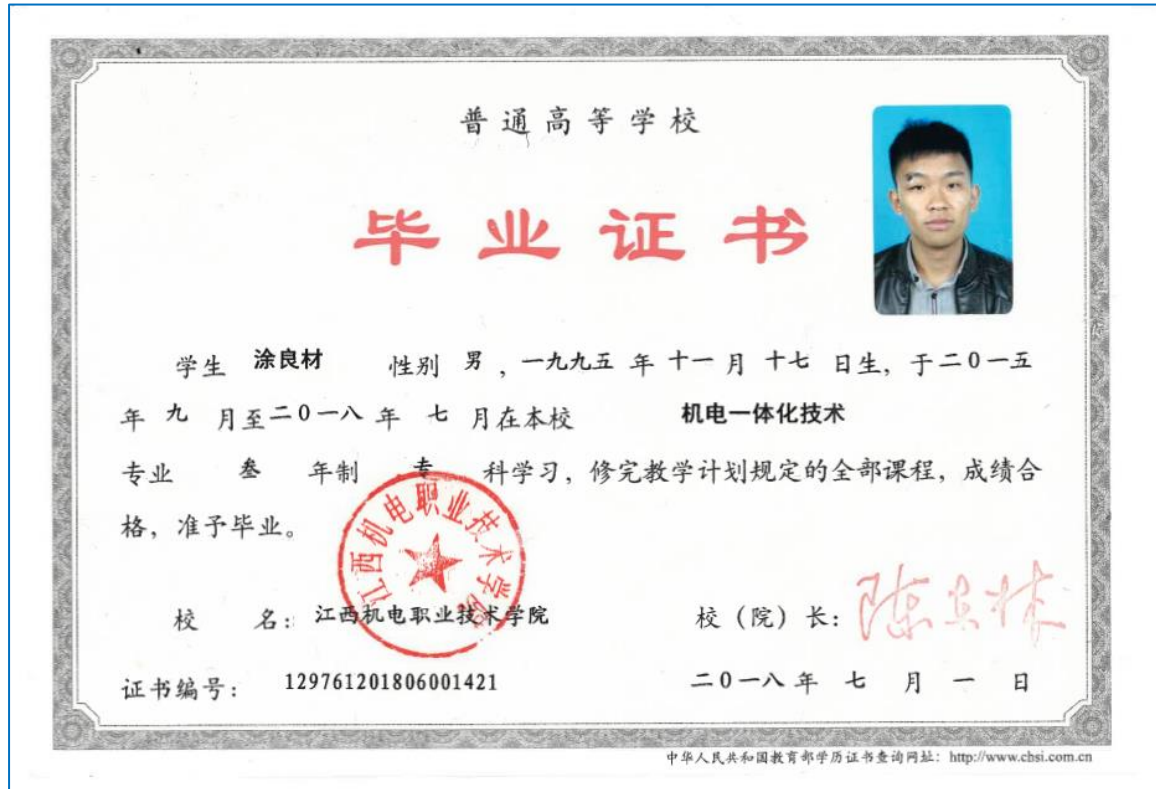 普通高等学校
毕业证书
学生 涂良材 性别 男 ，一九九五 年 十一 月 十七 日生，于二〇一五
年 九 月至二〇一八 年 七 月在本校 机电一体化技术
专业 叁 年制 专 科学习，修完教学计划规定的全部课程，成绩合
格，准予毕业。
江西机电职业技术学院
校 名：江西机电职业技术学院 校（院）长：
证书编号：129761201806001421 二〇一八 年 七 月 一 日
中华人民共和国教育部学历证书查询网址：http://www.chsi.com.cn